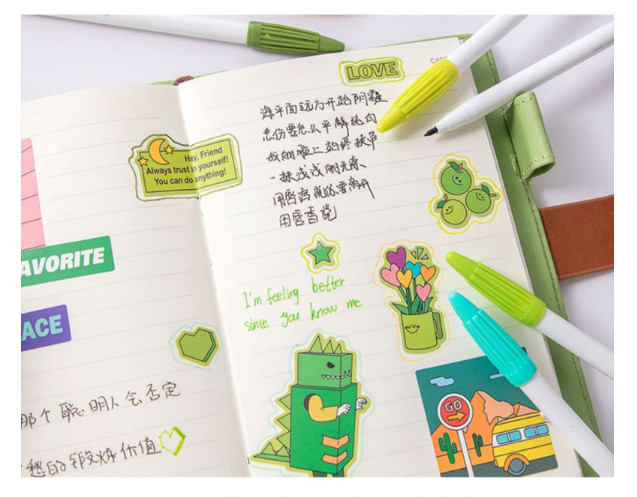 Hey, Friend
Always trust in yourself!
You can do anything!
AVORITE
ACE
那个聪明人会否定
愁的锻炼价值
LOVE
海平面远方开始阴霾
悲伤要怎么平静纯白
我的脸上始终
一抹浅浅的无奈
用唇语说你要离开
I'm feeling better
since you know me
GO